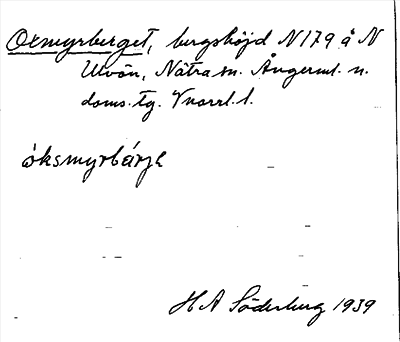 Oxmyrberget, bergshöjd N 179 å N
Ulvön, Nätra sn. Ångerml. n.
doms. tg. Vnorrl. l.
ò̀ksmyrbárjə
H A Söderberg 1939